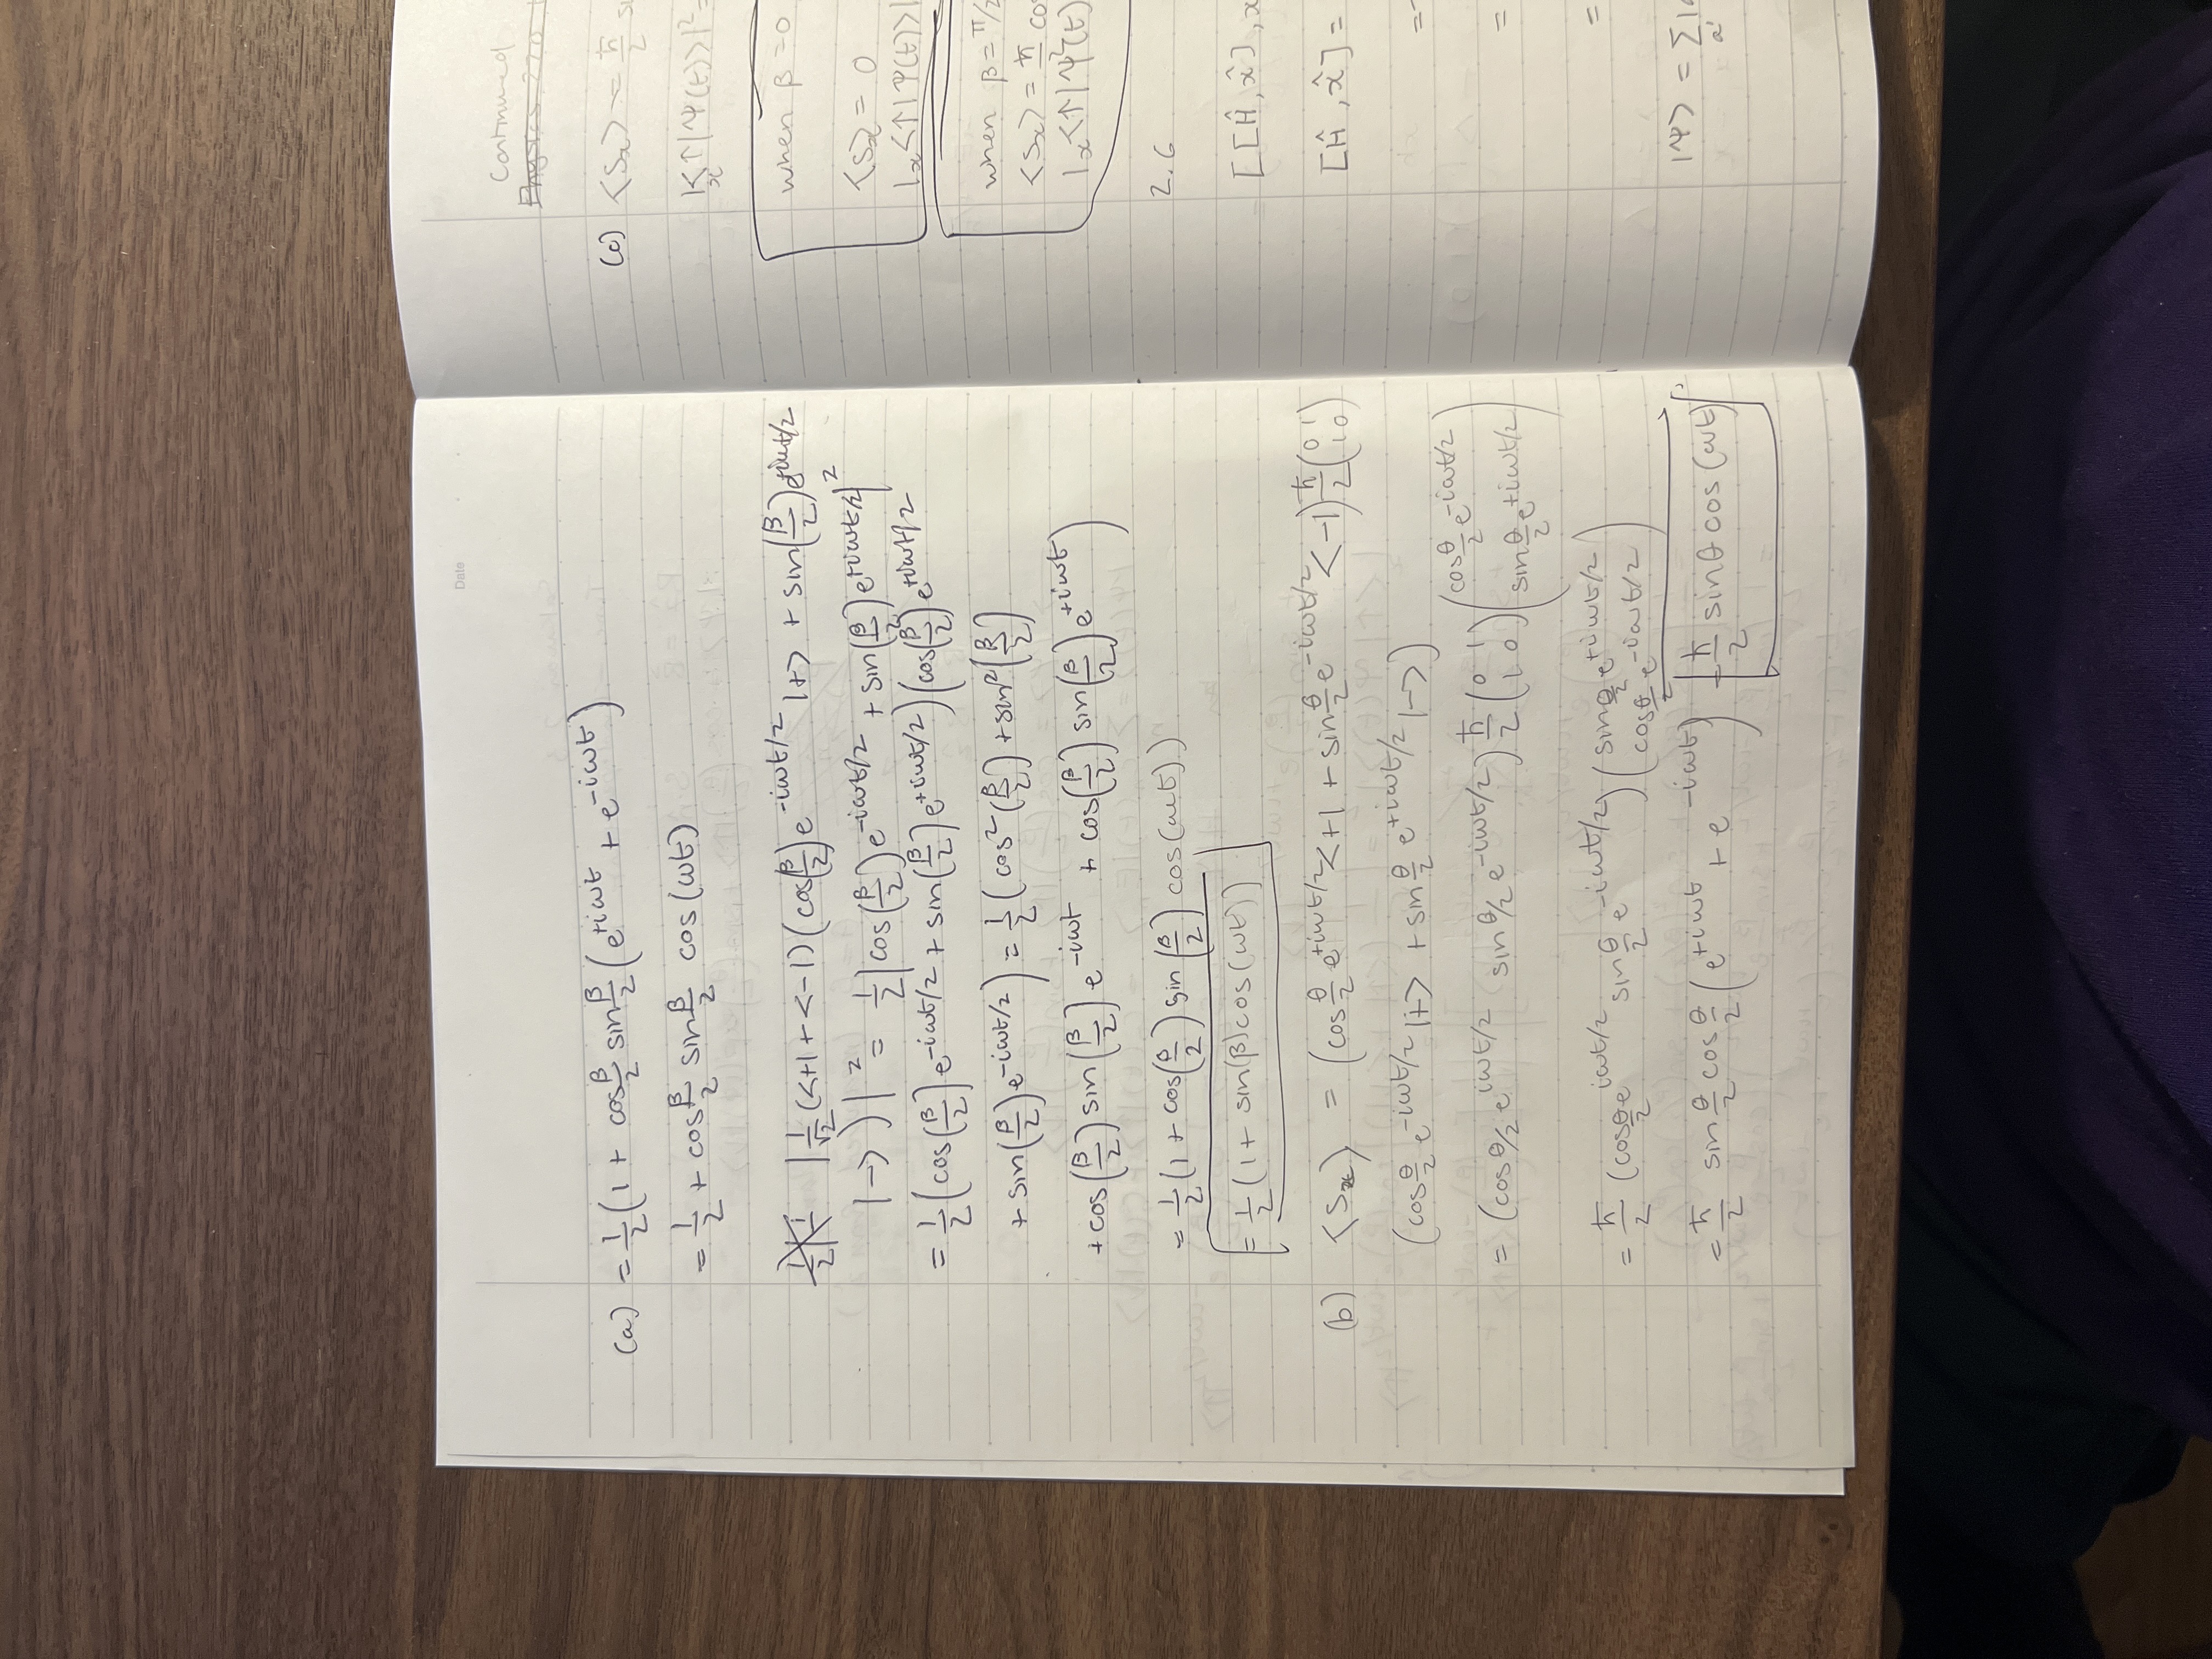 Date
(a) = 1/2 (1 + cos β/2 sin β/2 (e^{+iωt} + e^{-iωt})
= 1/2 + cos β/2 sin β/2 cos(ωt)
|1/√2 (<+| + <-|) (cos(β/2) e^{-iωt/2} |+> + sin(β/2) e^{+iωt/2}
|->)|² = 1/2 |cos(β/2) e^{-iωt/2} + sin(β/2) e^{+iωt/2}|²
= 1/2 (cos(β/2) e^{-iωt/2} + sin(β/2) e^{+iωt/2}) (cos(β/2) e^{+iωt/2}
+ sin(β/2) e^{-iωt/2}) = 1/2 (cos²(β/2) + sin²(β/2)
+ cos(β/2) sin(β/2) e^{-iωt} + cos(β/2) sin(β/2) e^{+iωt})
= 1/2 (1 + cos(β/2) sin(β/2) cos(ωt))
= 1/2 (1 + sin(β) cos(ωt))
(b) <Sx> = (cos θ/2 e^{+iωt/2} <+| + sin θ/2 e^{-iωt/2} <-|) ħ/2 (0 1 / 1 0)
(cos θ/2 e^{-iωt/2} |+> + sin θ/2 e^{+iωt/2} |->)
= (cos θ/2 e^{iωt/2} sin θ/2 e^{-iωt/2}) ħ/2 (0 1 / 1 0) (cos θ/2 e^{-iωt/2} / sin θ/2 e^{+iωt/2})
= ħ/2 (cos θ/2 e^{iωt/2} sin θ/2 e^{-iωt/2}) (sin θ/2 e^{+iωt/2} / cos θ/2 e^{-iωt/2})
= ħ/2 sin θ/2 cos θ/2 (e^{+iωt} + e^{-iωt}) = ħ/2 sinθ cos(ωt)
Continued
Physics 220
(c) <Sx> = ħ/2
|x<↑|Ψ(t)>|² =
when β = 0
<Sx> = 0
|x<↑|Ψ(t)>|
when β = π/2
<Sx> = ħ/2 co
|x<↑|Ψ(t)
2.6
[[Ĥ, x̂], x
[Ĥ, x̂] =
=
=
=
|Ψ> = Σ_{a'}